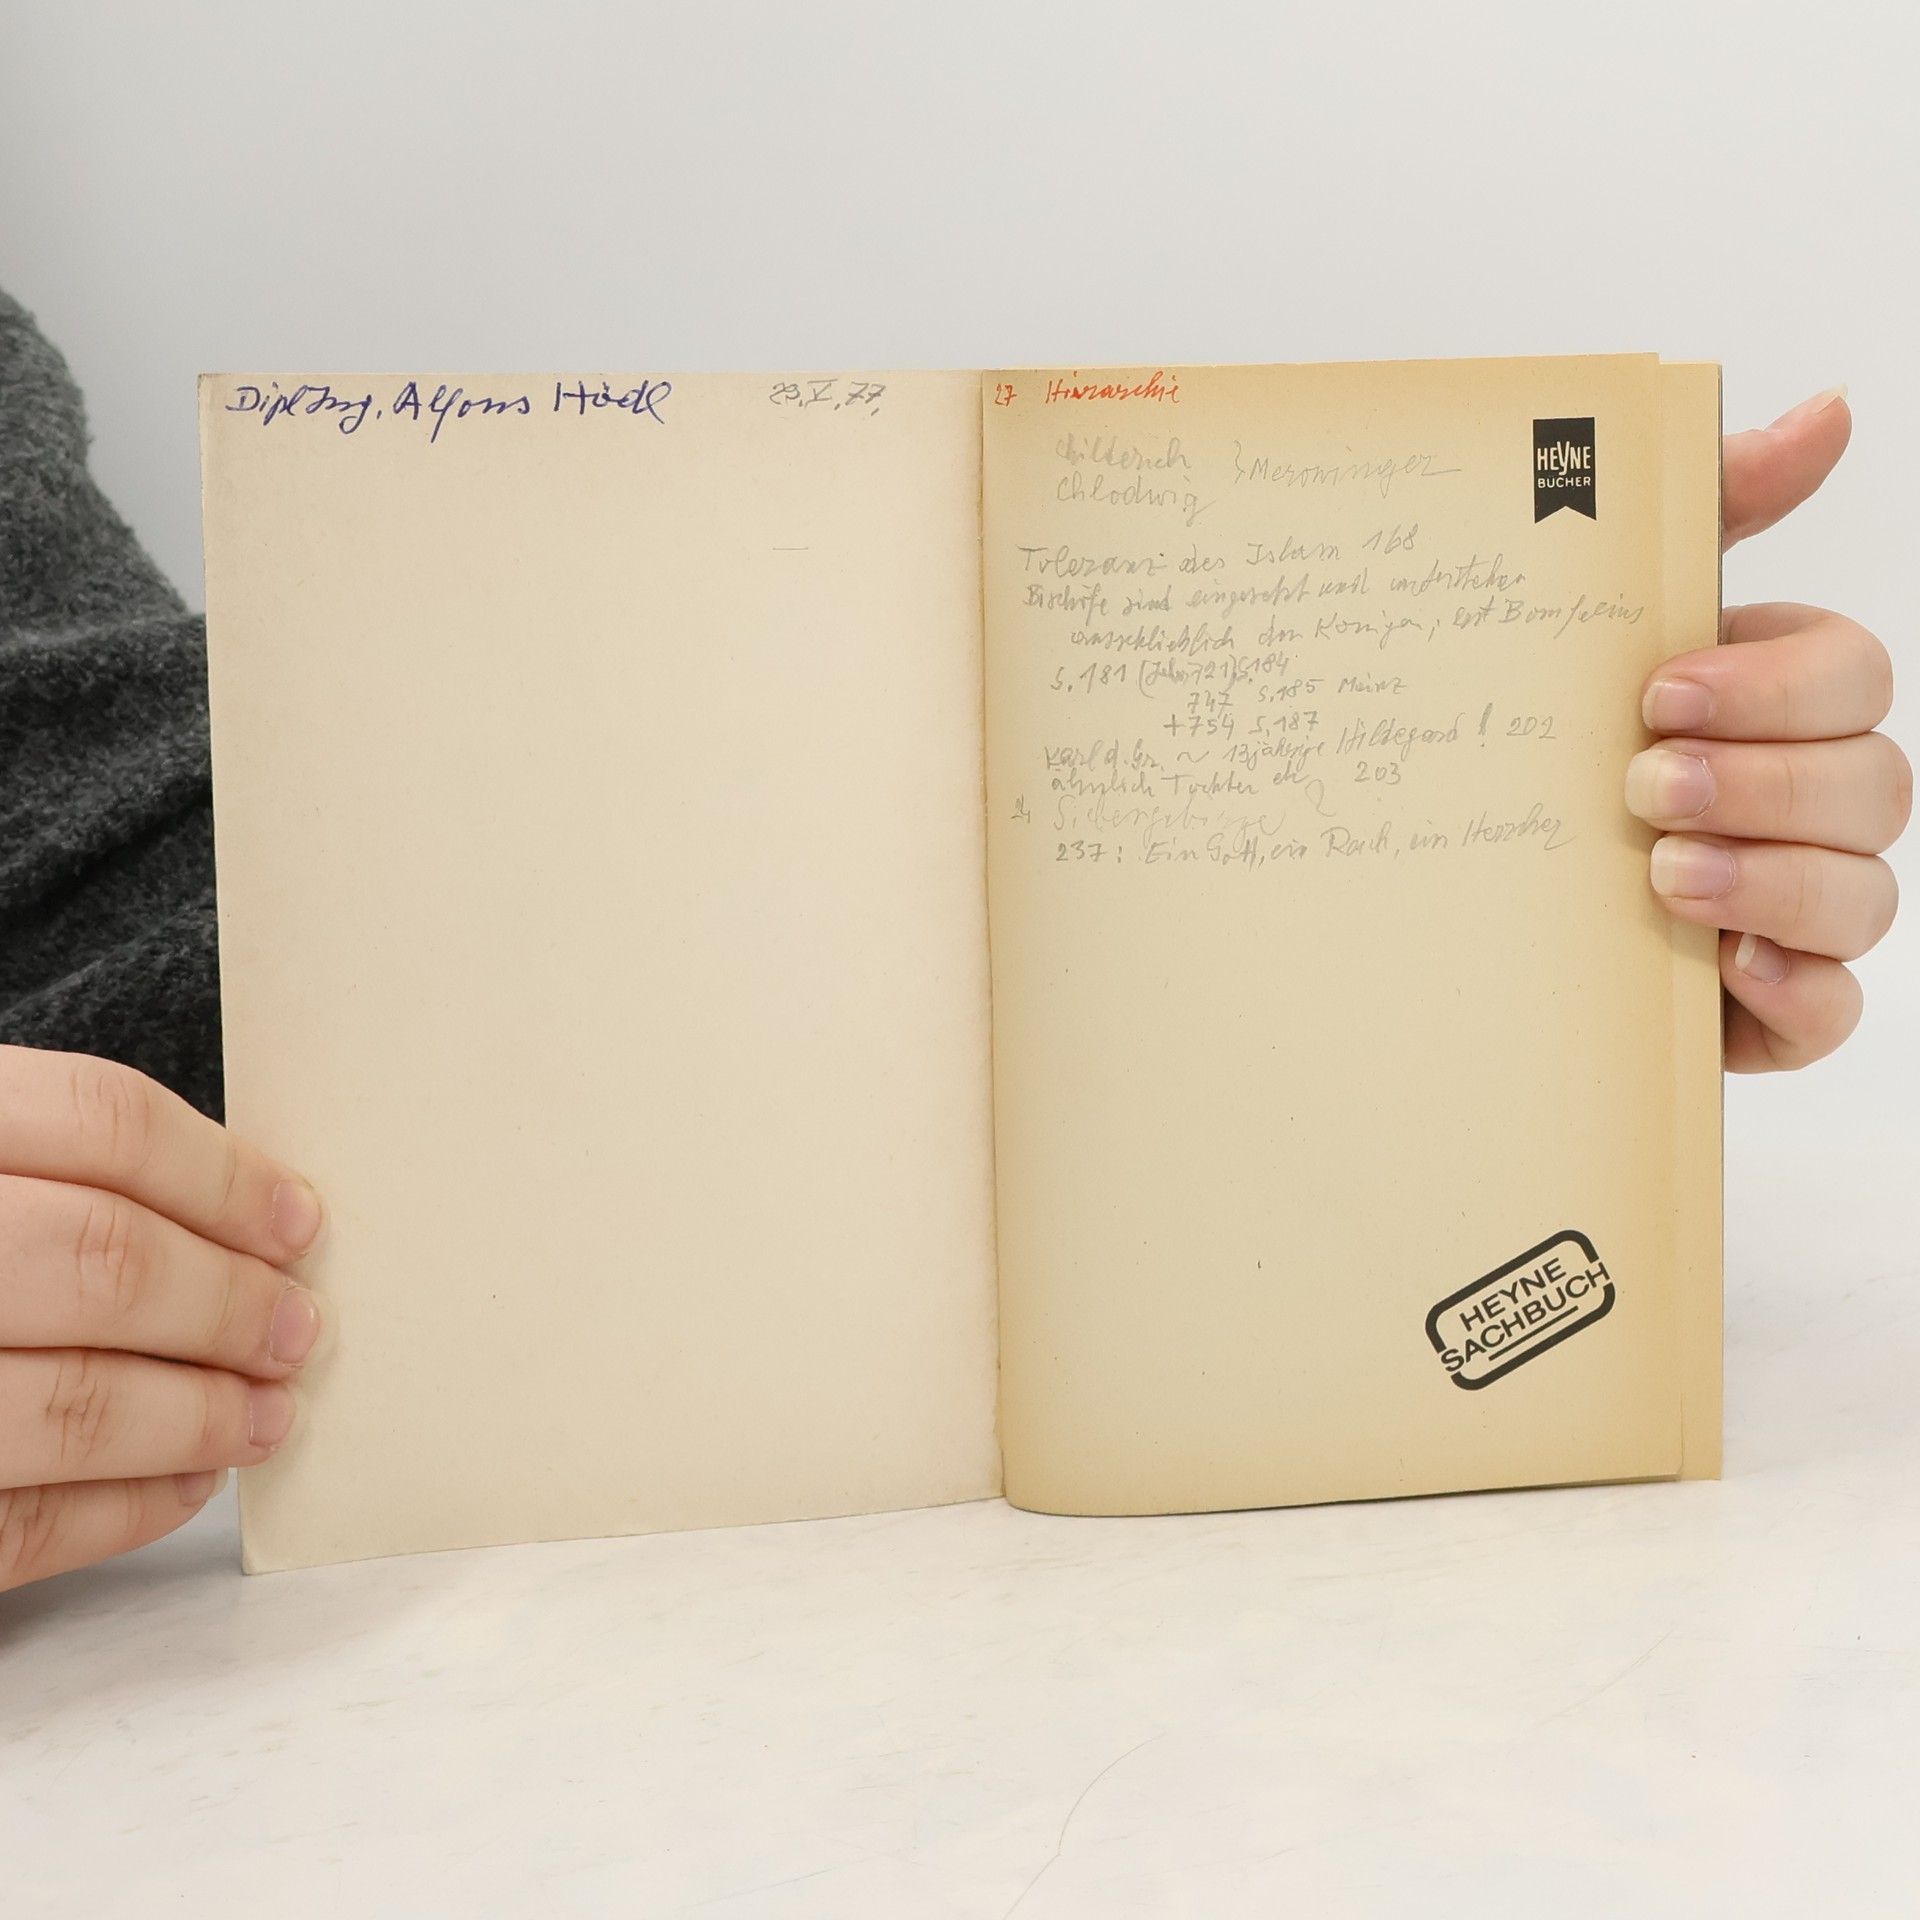 Dipl Ing. Alfons Hödl 23.V.77.
27 Hierarchie
HEYNE
BÜCHER
Childerich
Chlodwig } Merowinger
Toleranz des Islam 168
Bischöfe sind eingesetzt und unterstehen
ausschließlich den Königen; erst Bonifacius
S. 181 (Jahr 721) S. 184
747 S. 185 Mainz
+754 S. 187
Karl d. Gr. ~ 13jährige Hildegard ! 202
ähnlich Tochter etc 203
Siebengebirge
237: Ein Gott, ein Reich, ein Herrscher
HEYNE
SACHBUCH